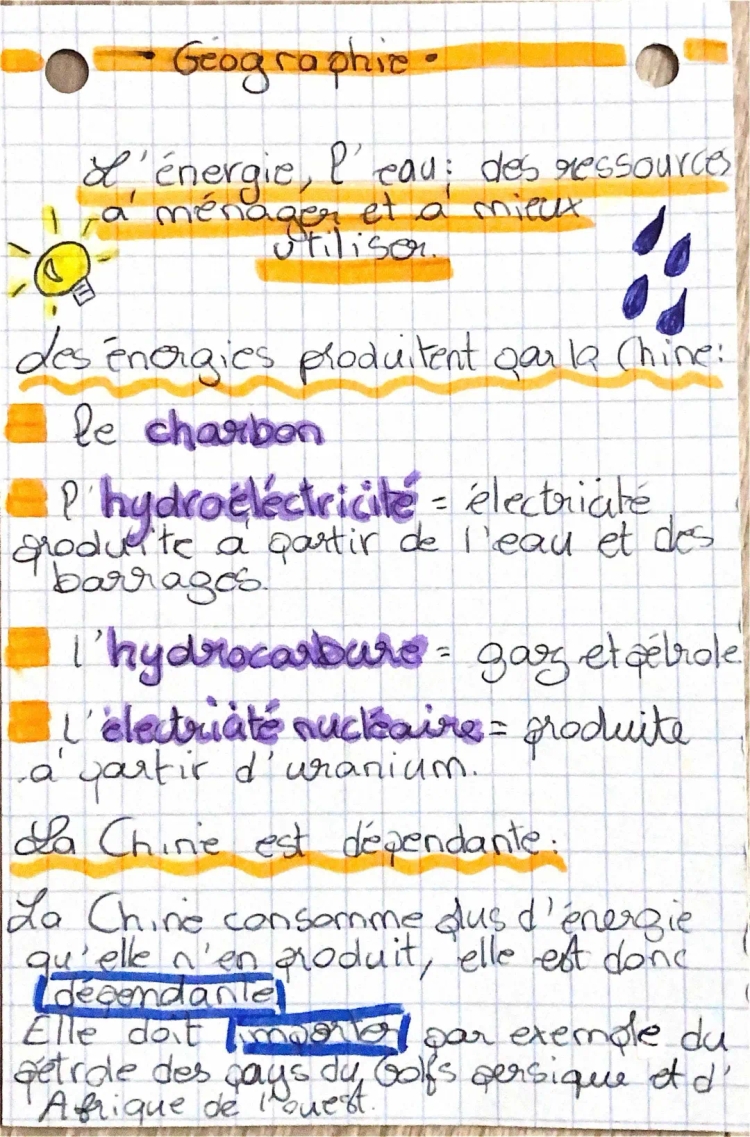 • Géographie •
L'énergie, l'eau : des ressources
à ménager et à mieux
utiliser.
des énergies produitent par la Chine :
le charbon
l'hydroéléctricité = électricité
produite à partir de l'eau et des
barrages.
l'hydrocarbure = gaz et pétrole
L'électricité nucléaire = produite
à partir d'uranium.
La Chine est dépendante :
La Chine consomme plus d'énergie
qu'elle n'en produit, elle est donc
dépendante
Elle doit importer par exemple du
pétrole des pays du Golfs persique et d'
Afrique de l'ouest.